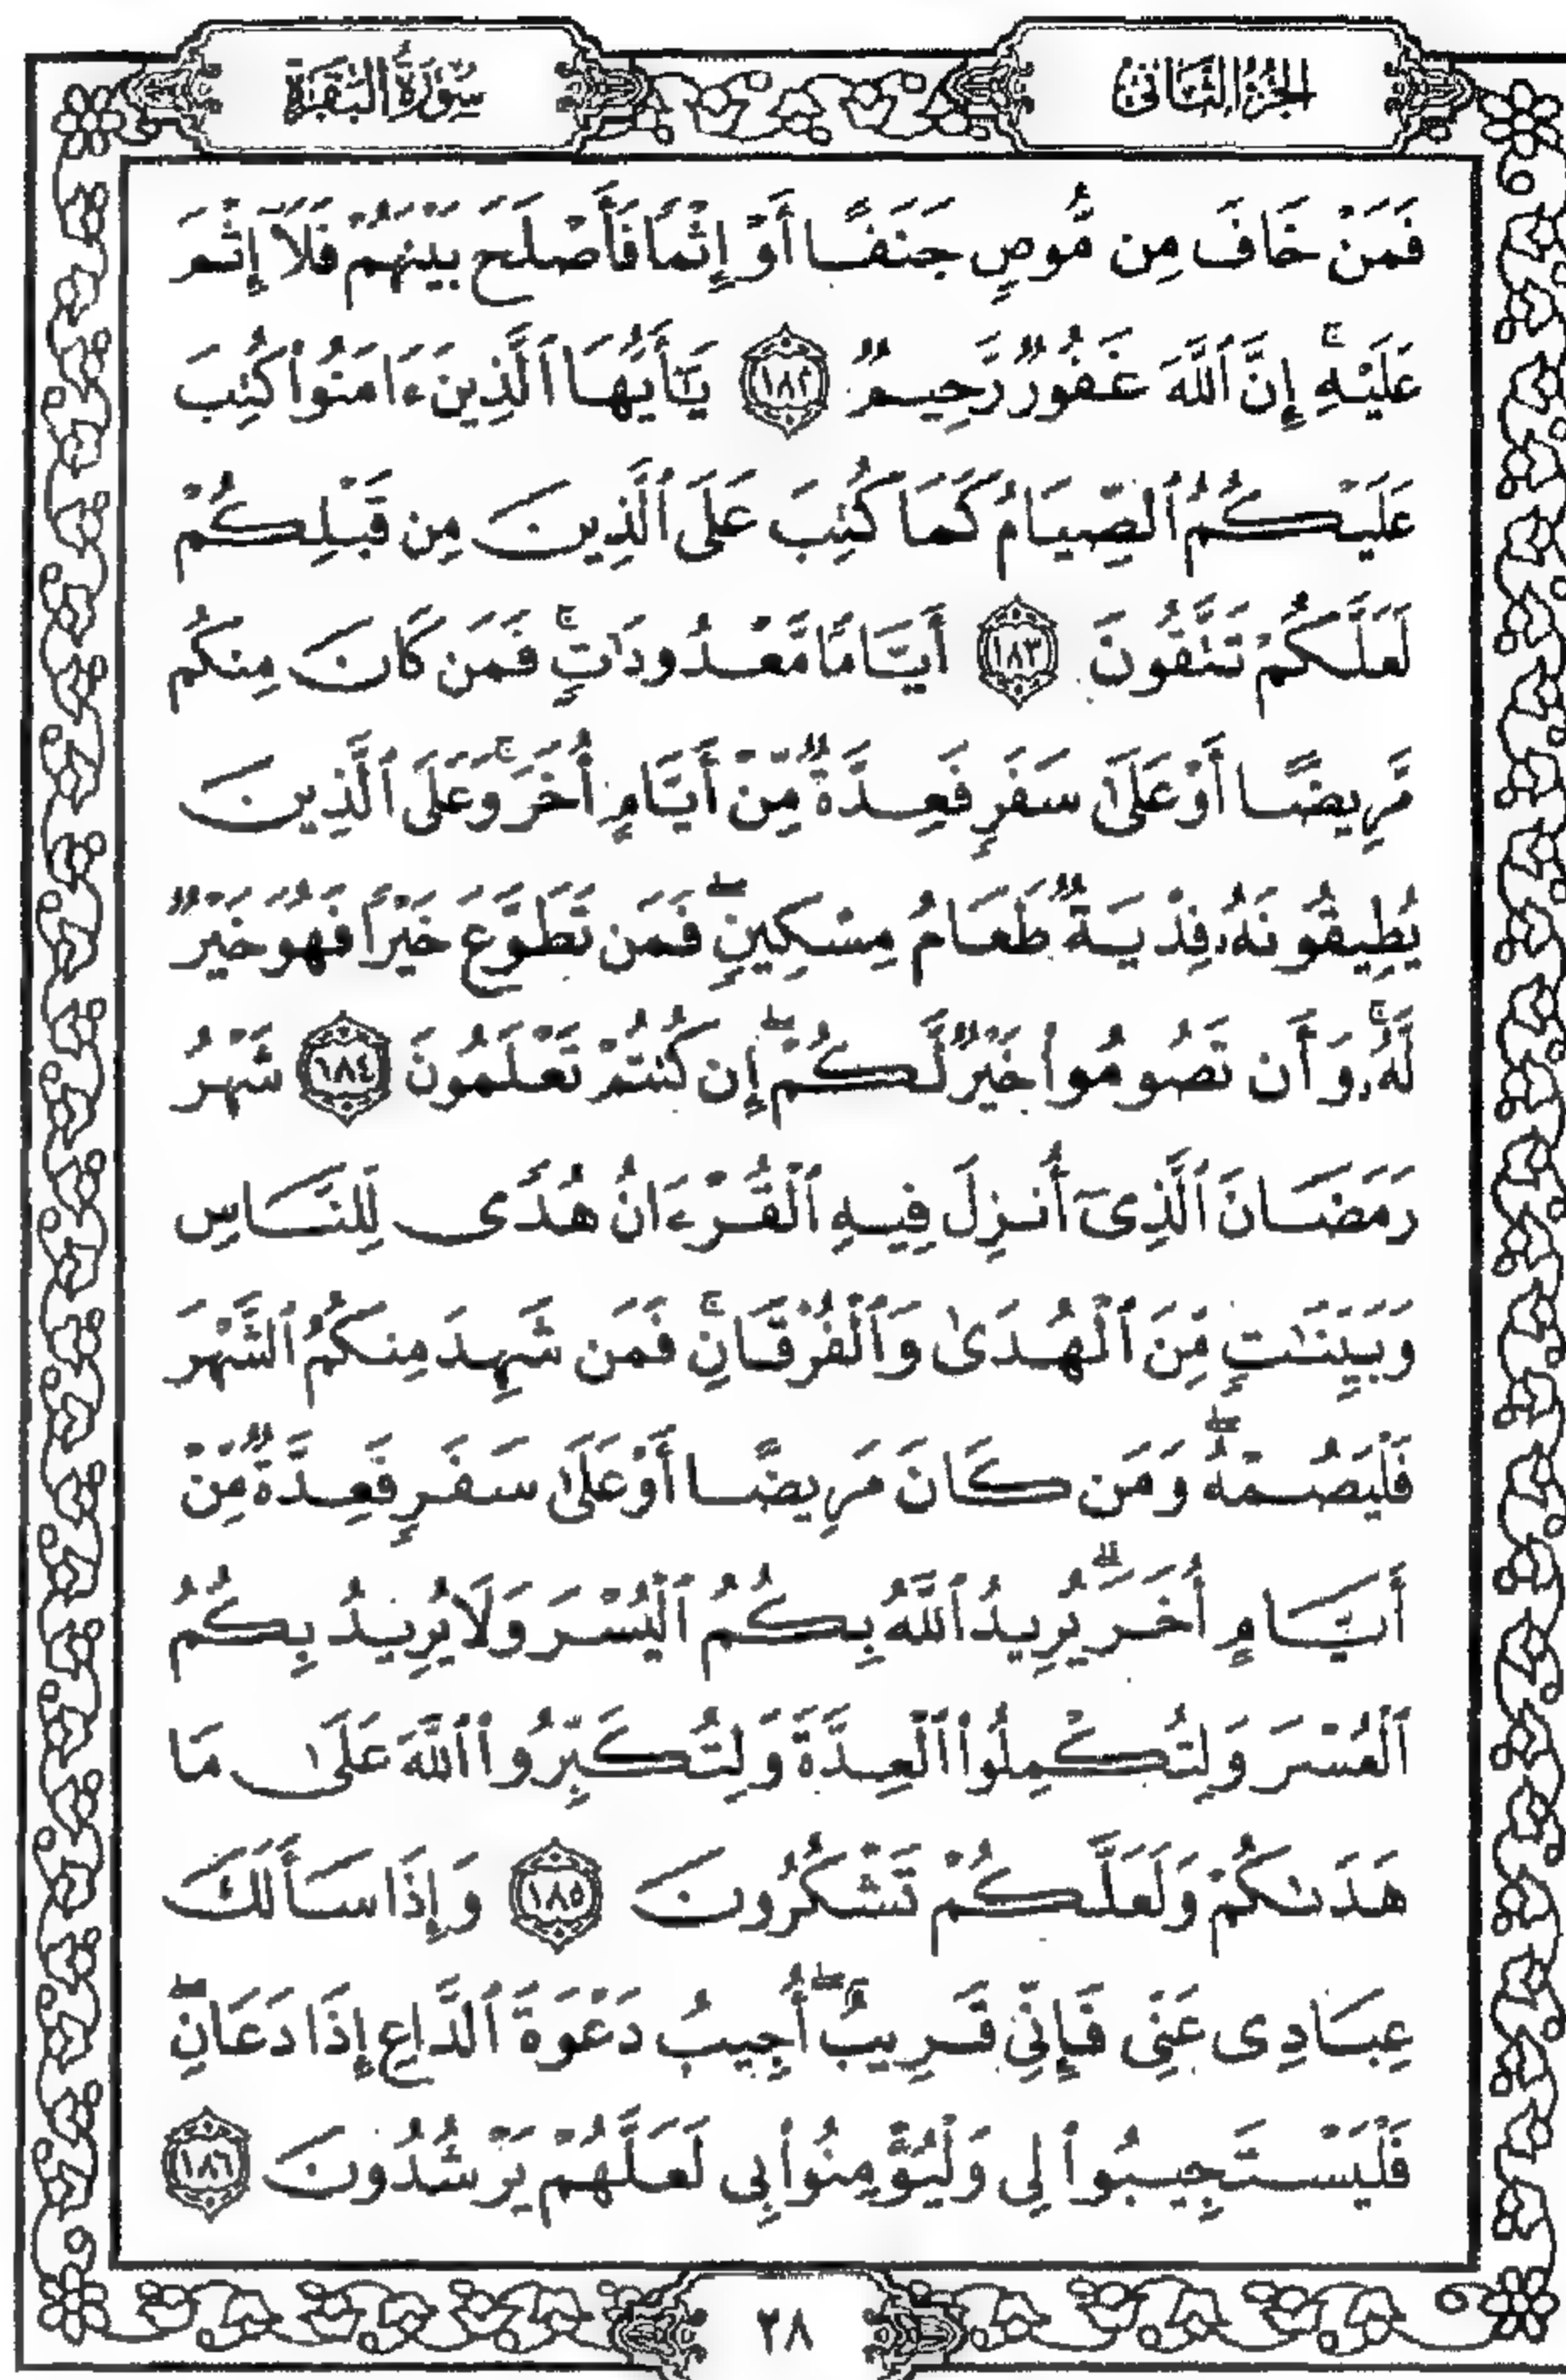 الجزء الثاني
سورة البقرة
فَمَنْ خَافَ مِن مُّوصٍ جَنَفًا أَوْ إِثْمًا فَأَصْلَحَ بَيْنَهُمْ فَلَآ إِثْمَ
عَلَيْهِۚ إِنَّ ٱللَّهَ غَفُورٌ رَّحِيمٌ ١٨٢ يَٰٓأَيُّهَا ٱلَّذِينَ ءَامَنُوا۟ كُتِبَ
عَلَيْكُمُ ٱلصِّيَامُ كَمَا كُتِبَ عَلَى ٱلَّذِينَ مِن قَبْلِكُمْ
لَعَلَّكُمْ تَتَّقُونَ ١٨٣ أَيَّامًا مَّعْدُودَٰتٍۚ فَمَن كَانَ مِنكُم
مَّرِيضًا أَوْ عَلَىٰ سَفَرٍ فَعِدَّةٌ مِّنْ أَيَّامٍ أُخَرَۚ وَعَلَى ٱلَّذِينَ
يُطِيقُونَهُۥ فِدْيَةٌ طَعَامُ مِسْكِينٍۖ فَمَن تَطَوَّعَ خَيْرًا فَهُوَ خَيْرٌ
لَّهُۥۚ وَأَن تَصُومُوا۟ خَيْرٌ لَّكُمْۖ إِن كُنتُمْ تَعْلَمُونَ ١٨٤ شَهْرُ
رَمَضَانَ ٱلَّذِىٓ أُنزِلَ فِيهِ ٱلْقُرْءَانُ هُدًى لِّلنَّاسِ
وَبَيِّنَٰتٍ مِّنَ ٱلْهُدَىٰ وَٱلْفُرْقَانِۚ فَمَن شَهِدَ مِنكُمُ ٱلشَّهْرَ
فَلْيَصُمْهُۖ وَمَن كَانَ مَرِيضًا أَوْ عَلَىٰ سَفَرٍ فَعِدَّةٌ مِّنْ
أَيَّامٍ أُخَرَۗ يُرِيدُ ٱللَّهُ بِكُمُ ٱلْيُسْرَ وَلَا يُرِيدُ بِكُمُ
ٱلْعُسْرَ وَلِتُكْمِلُوا۟ ٱلْعِدَّةَ وَلِتُكَبِّرُوا۟ ٱللَّهَ عَلَىٰ مَا
هَدَىٰكُمْ وَلَعَلَّكُمْ تَشْكُرُونَ ١٨٥ وَإِذَا سَأَلَكَ
عِبَادِى عَنِّى فَإِنِّى قَرِيبٌۖ أُجِيبُ دَعْوَةَ ٱلدَّاعِ إِذَا دَعَانِۖ
فَلْيَسْتَجِيبُوا۟ لِى وَلْيُؤْمِنُوا۟ بِى لَعَلَّهُمْ يَرْشُدُونَ ١٨٦
٢٨